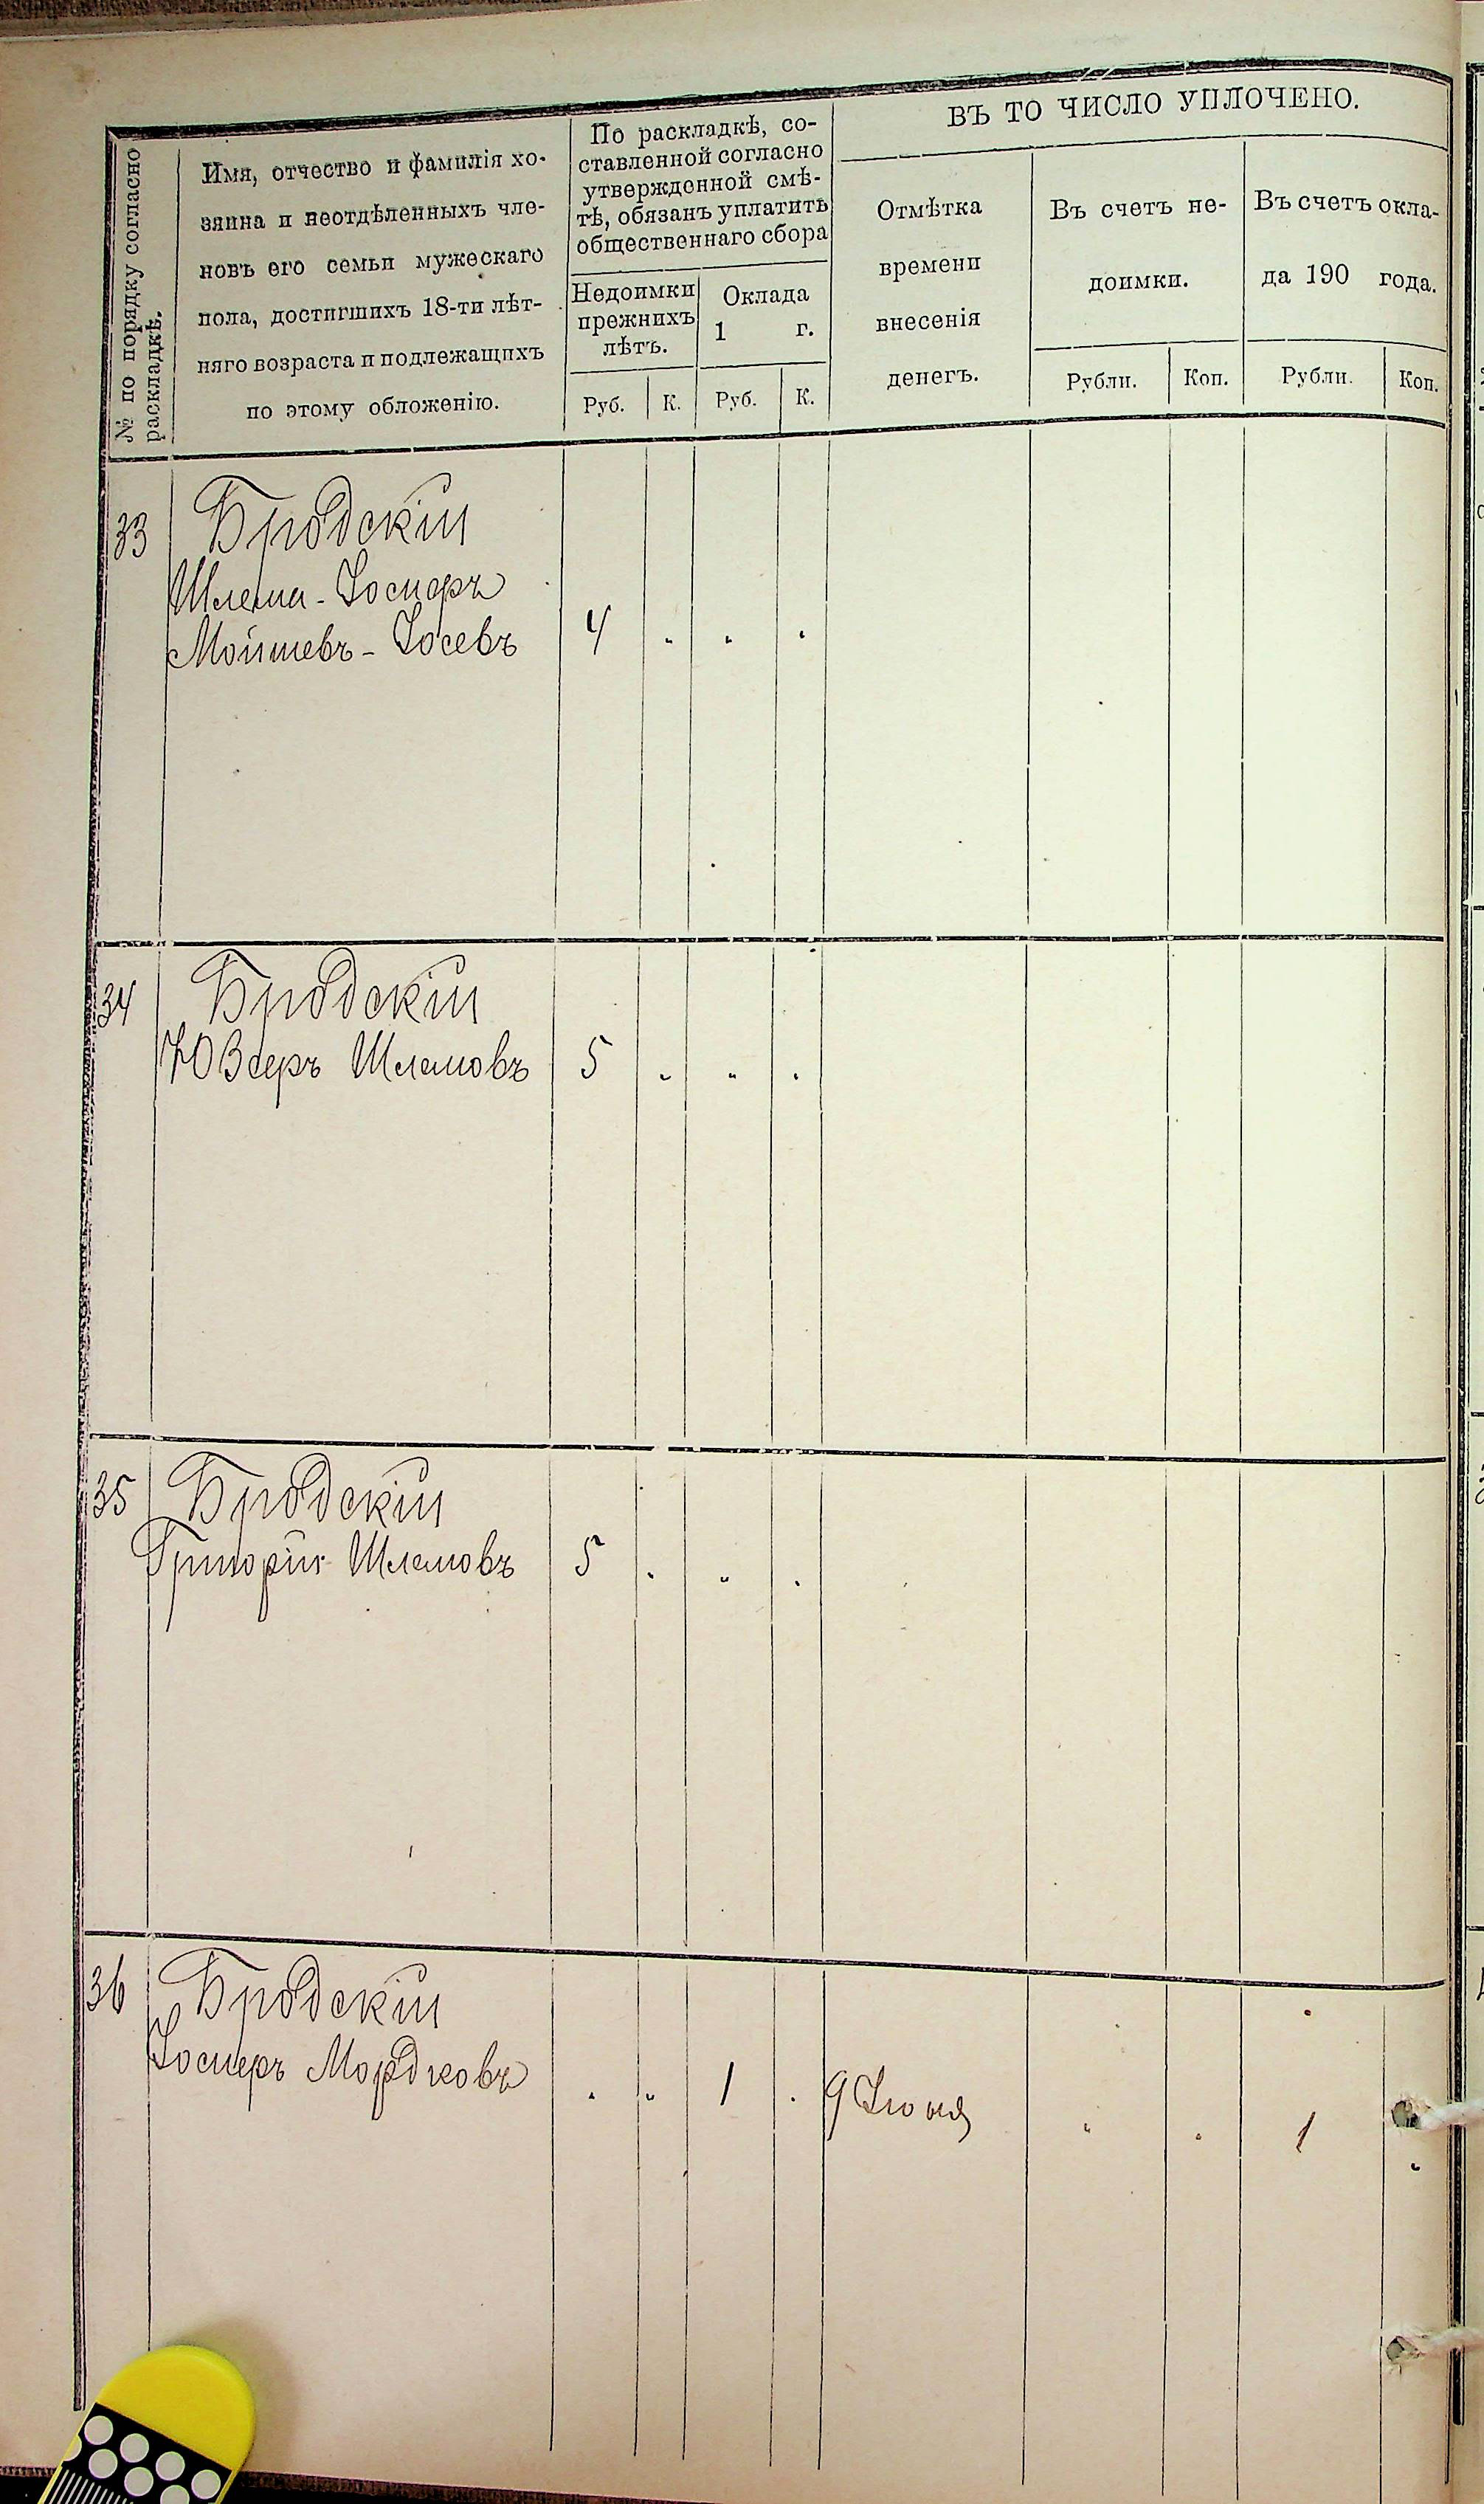 ВЪ ТО ЧИСЛО УПЛОЧЕНО.
№ по порядку согласно
раскладкѣ.
Имя, отчество и фамилія хо-
зяина и неотдѣленныхъ чле-
новъ его семьи мужескаго
пола, достигшихъ 18-ти лѣт-
няго возраста и подлежащихъ
по этому обложенію.
По раскладкѣ, со-
ставленной согласно
утвержденной смѣ-
тѣ, обязанъ уплатить
общественнаго сбора
Недоимки
прежнихъ
лѣтъ.
Оклада
1 г.
Руб. К. Руб. К.
Отмѣтка
времени
внесенія
денегъ.
Въ счетъ не-
доимки.
Рубли. Коп.
Въ счетъ окла-
да 190 года.
Рубли. Коп.
33 Бродскій
Шлема-Іосифъ
Мойшевъ-Іосевъ 4 " " "
34 Бродскій
Юзефъ Шлемовъ 5 " " "
35 Бродскій
Григорій Шлемовъ 5 " " "
36 Бродскій
Іосифъ Мордковъ " " 1 " 9 Іюня " " 1 "